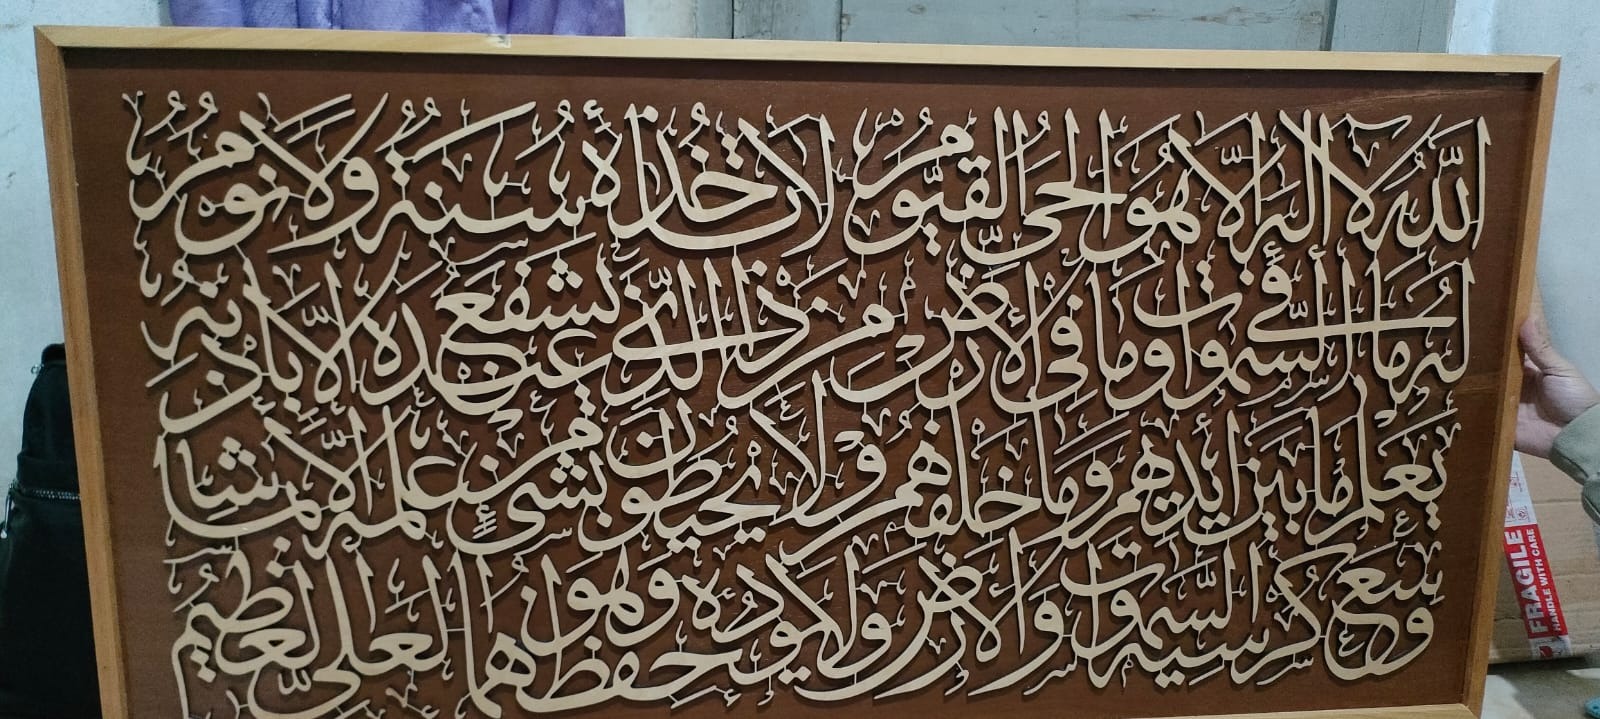 اللّٰهُ لَا إِلٰهَ إِلَّا هُوَ الْحَيُّ الْقَيُّومُ لَا تَأْخُذُهُ سِنَةٌ وَلَا نَوْمٌ
لَهُ مَا فِي السَّمٰوَاتِ وَمَا فِي الْأَرْضِ مَنْ ذَا الَّذِي يَشْفَعُ عِنْدَهُ إِلَّا بِإِذْنِهِ
يَعْلَمُ مَا بَيْنَ أَيْدِيهِمْ وَمَا خَلْفَهُمْ وَلَا يُحِيطُونَ بِشَيْءٍ مِنْ عِلْمِهِ إِلَّا بِمَا شَاءَ
وَسِعَ كُرْسِيُّهُ السَّمٰوَاتِ وَالْأَرْضَ وَلَا يَئُودُهُ حِفْظُهُمَا وَهُوَ الْعَلِيُّ الْعَظِيمُ
FRAGILE
HANDLE WITH CARE